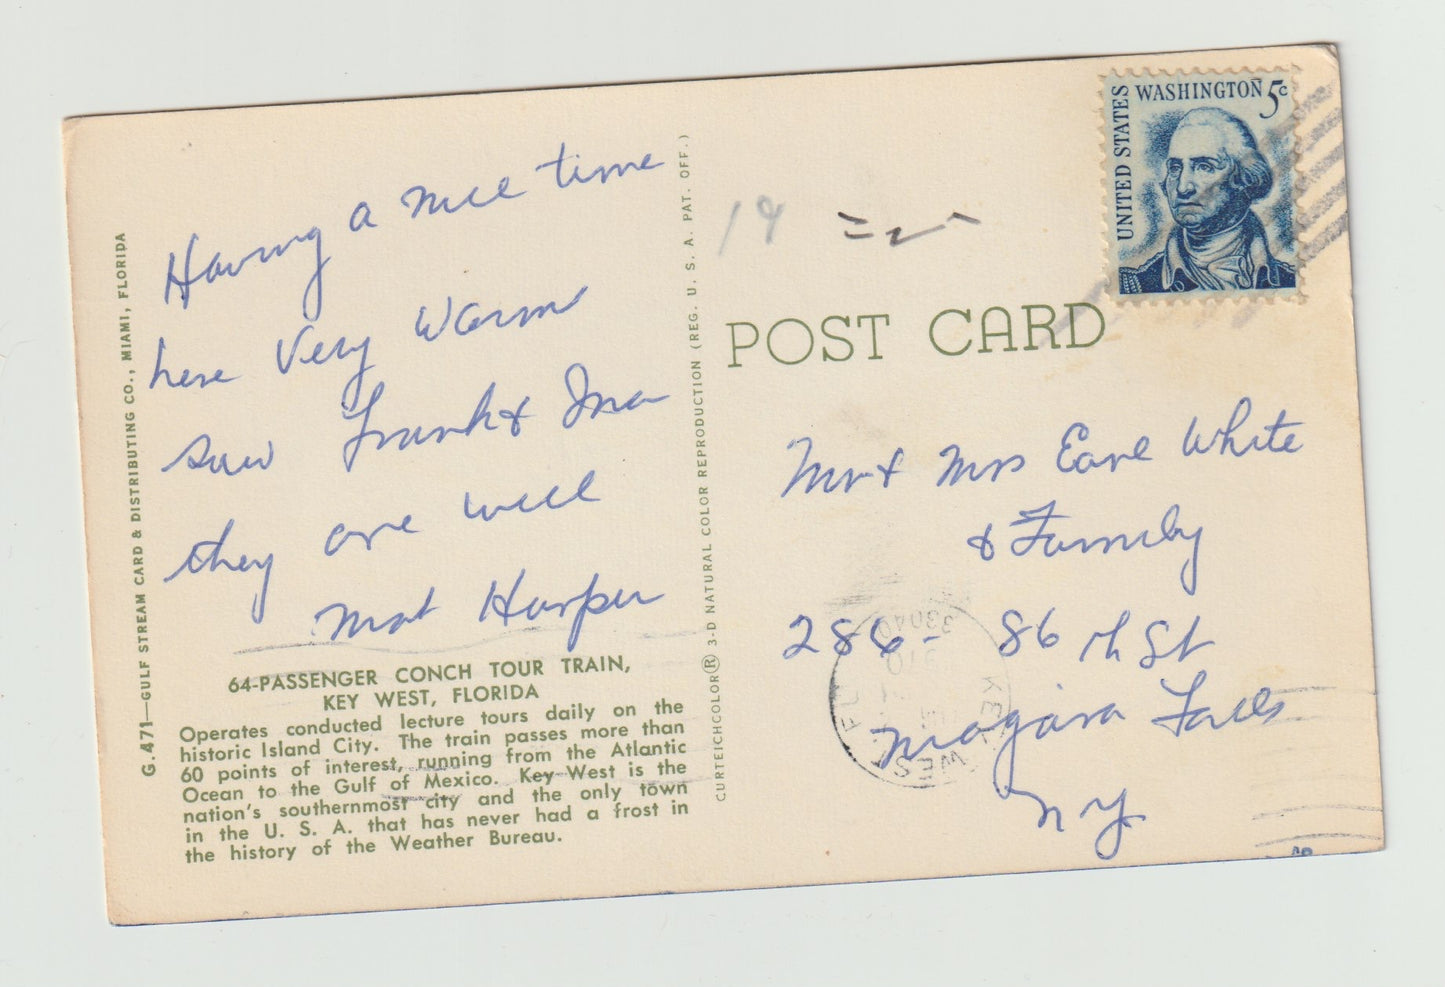 Having a nice time
here Very Warm
saw Frank & Ina
they are well
Mat Harper
64-PASSENGER CONCH TOUR TRAIN,
KEY WEST, FLORIDA
Operates conducted lecture tours daily on the
historic Island City. The train passes more than
60 points of interest, running from the Atlantic
Ocean to the Gulf of Mexico. Key West is the
nation's southernmost city and the only town
in the U. S. A. that has never had a frost in
the history of the Weather Bureau.
G.471—GULF STREAM CARD & DISTRIBUTING CO., MIAMI, FLORIDA
CURTEICHCOLOR® 3-D NATURAL COLOR REPRODUCTION (REG. U. S. A. PAT. OFF.)
19
POST CARD
UNITED STATES
WASHINGTON 5c
Mr & Mrs Earl White
& Family
286- 86 th St
Niagara Falls
NY
KEY WEST, FL
33040